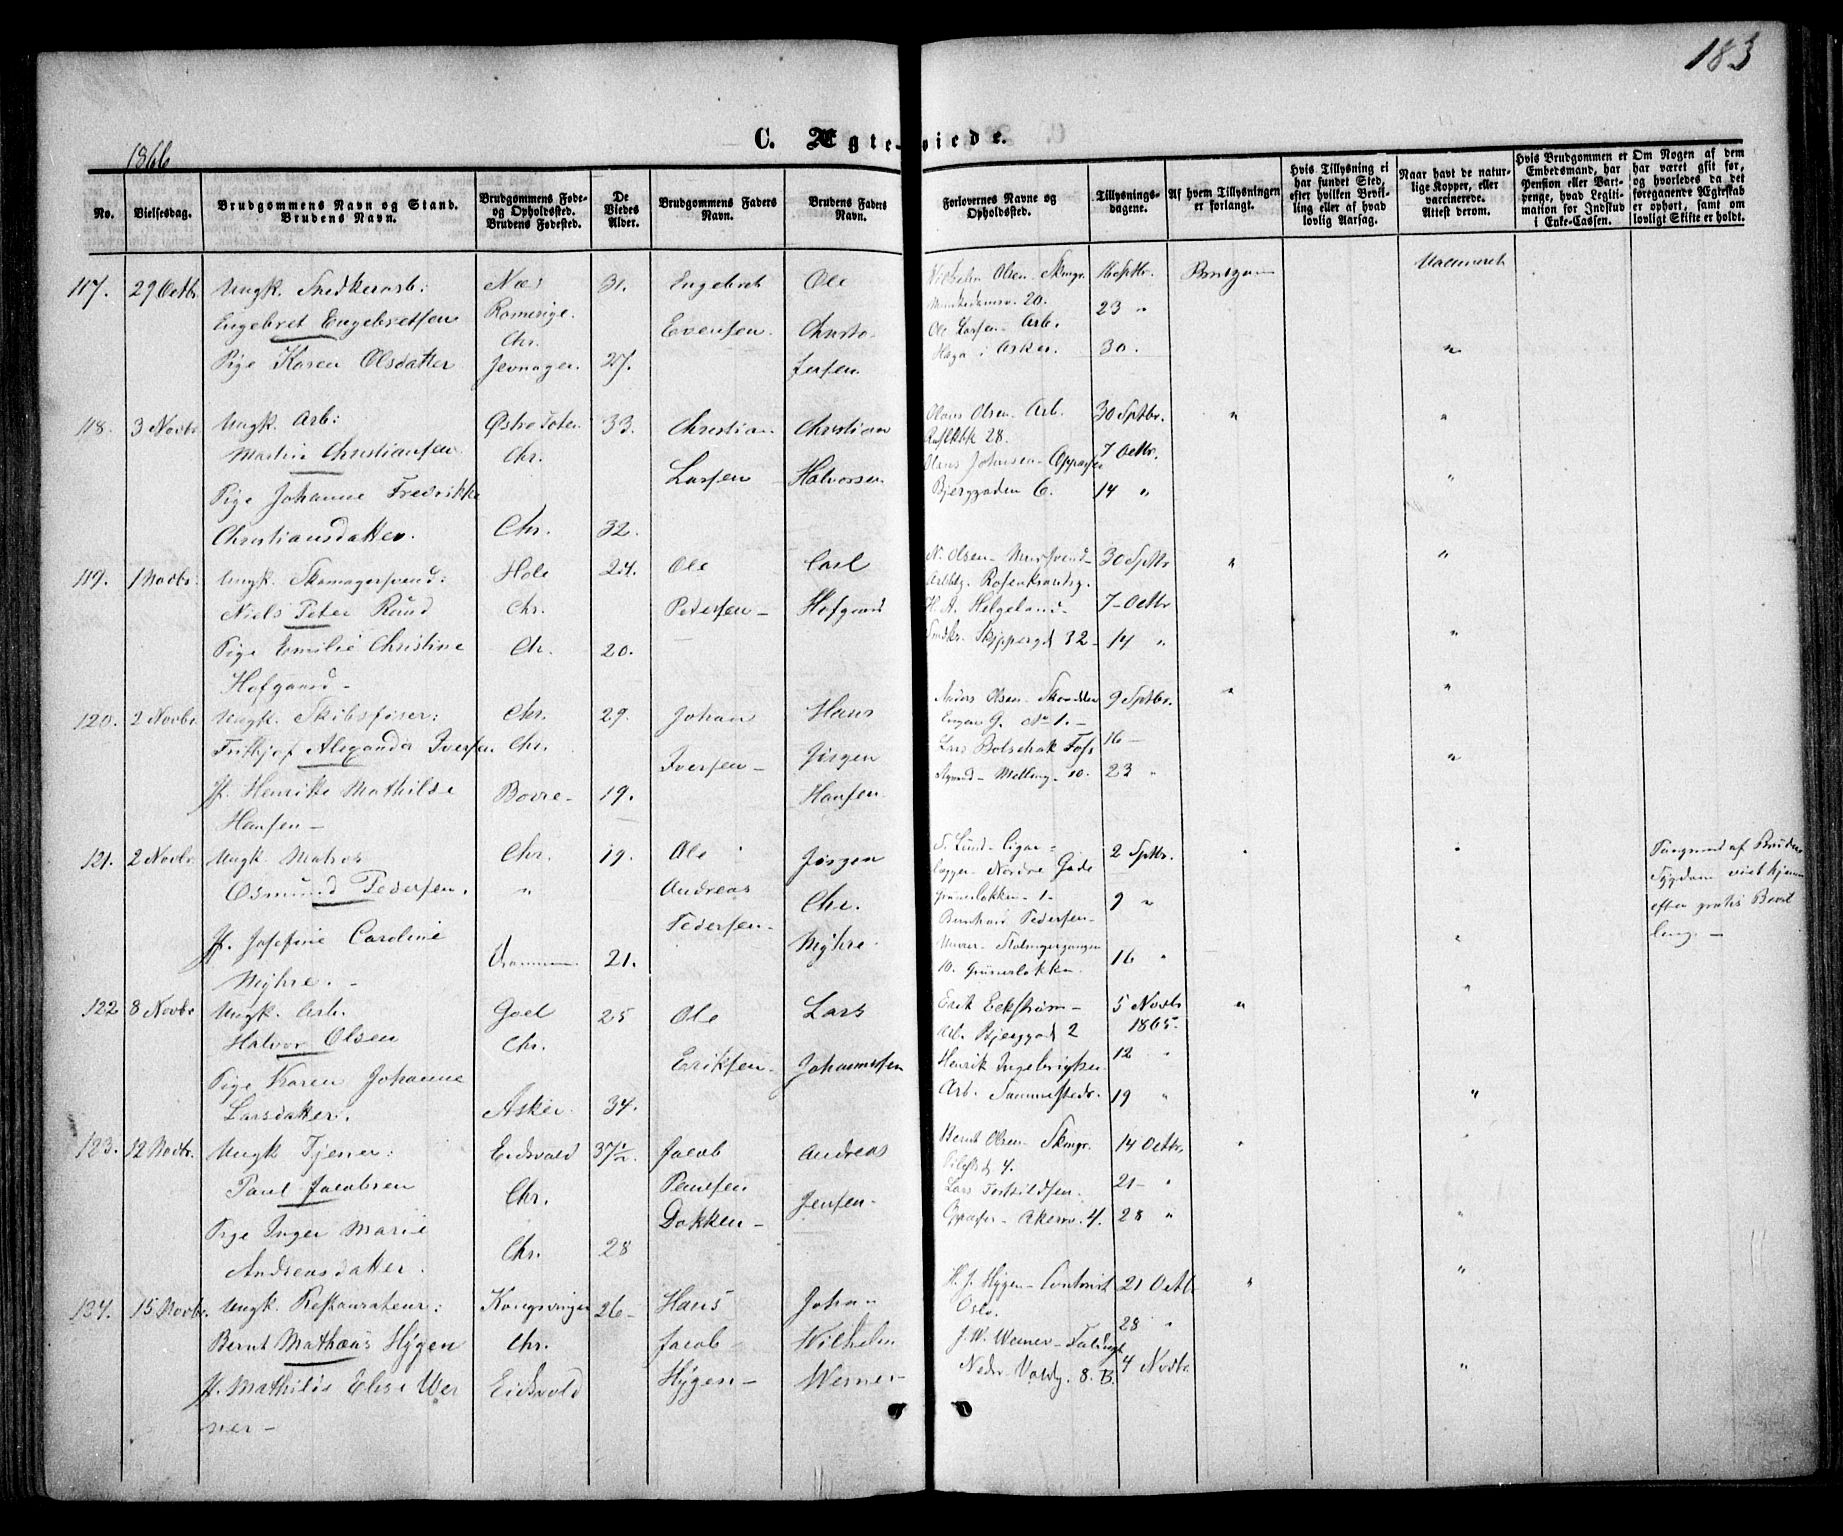 183
C. Ægte-viede.
1866
No.
Vielsesdag.
Brudgommens Navn og Stand.
Brudens Navn.
Brudgommens Føde-
og Opholdssted.
Brudens Fødested.
De
Viedes
Alder.
Brudgommens Faders
Navn.
Brudens Faders
Navn.
Forlovernes Navne og
Opholdssted.
Tillysnings-
dagene.
Af hvem Tillysningen
er forlangt.
Hvis Tillysning ei
har fundet Sted,
efter hvilken Bevil-
ling eller af hvad
lovlig Aarsag.
Naar havt de natur-
lige Kopper, eller
vaccinerede.
Attest derom.
Hvis Brudgommen er
Embedsmand, har
Pension eller Vart-
penge, hvad Legiti-
mation for Indskud
i Enke-Cassen.
Om Nogen af dem
har været gift før,
og hvorledes da det
foregaaende Ægteskab
er ophørt, samt om
lovligt Skifte er holdt.
117. 29 Octbr. Ungk. Snedkerarb: Næs 31. Engebret Ole Olsen 16 Sptbr. Brudgom Vaccineret
Engebret Engebretsen Romerige. Evensen. Christo- 20. 23 "
Chr. Ole Larsen Arb.
Pige Karen Olsdatter Jevnager 27. fersen. Haga i Asker. 30. "
118. 3 Novbr. Ungk. Arb: Østre Toten 33. Christian Christian Olaus Olsen Arb. 30 Sptbr. " "
Martin Christiansen Chr. 28.
Larsen Halvorsen Olaus Johnsen 7 Octbr.
Pige Johanne Fredrikke Bjerggaden 6. 14 " "
Christiansdatter. Chr. 32.
119. 1 Novbr. Ungk. Skomagersvend: Hole 24. Ole Carl N. Olsen Mursvend 30 Sptbr " "
Niels Peter Ruud Chr. Pedersen Hofgaard Rosenkrantzg.
H. A. Helgeland 7 Octbr
Pige Emilie Christine Chr. 20. Skipperg 32 14 " "
Hofgaard
120. 2 Novbr. Ungk. Skibsfører: Chr. 29. Johan Hans Anders Olsen 9 Sptbr. " "
Frithjof Alexander Iversen Chr. G. No 1.
Iversen Jørgen Lars 16
Jf. Henrike Mathilde Borre 19. Hansen. 10. 23 " "
Hansen
121. 2 Novbr. Ungk. Matros Chr. 19. Ole Jørgen Lund Cigar- 2 Sptbr. " " Paagrund af Brudens
Osmund Pedersen. " Andreas Chr. Nordre Gade Sygdom viet hjemme
Grünerløkken 1 9 " efter gratis Bevil-
Jf. Josefine Caroline Pedersen. Myhre. Bernhard Pedersen " ling.
Myhre. Drammen 21. Murer 16 "
10. Grünerløkken.
122 8 Novbr. Ungk. Arb. Goel 25 Ole Lars Erik Eckstrøm 5 Novbr " "
Halvor Olsen Chr. Arb. Bjerggad 2 1865
Eriksen. Johannessen Henrik Ingebrigtsen 12 "
Pige Karen Johanne Arb. Sammesteds. 19 " "
Larsdatter. Asker. 34.
123. 12 Novbr. Ungk Tjener: Eidsvold 37½. Jacob Andreas Bernt Olsen 14 Octbr. " "
Paul Jacobsen Chr. Paulsen Jensen. 4. 21 "
Dokken Lars
Pige Inger Marie Akersv. 4. 28 " "
Andreasdatter. Chr. 28
124. 15 Novbr. Ungk. Restaurateur: Kongsvinger 26 Hans Johan H. J. Hygen 21 Octbr " "
Oslo.
Bernt Mathæus Hygen Chr. Jacob Wilhelm J. W. Werner 28 "
Jf. Mathilde Elise Wer Eidsvold Hygen Werner Nedre Voldg. 8. B. 4 Novbr. "
ner